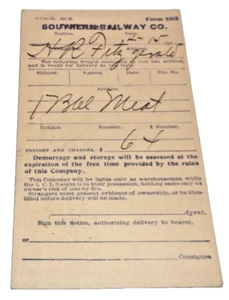 Form 2202
SOUTHERN RAILWAY CO.
Station, Date,
The following freight consigned to you has arrived,
and is ready for delivery
Shipper. Date. Pro. No.
1 Bbl Meat
Initials. Number. Number.
FREIGHT AND CHARGES, $
64
Demurrage and storage will be assessed at the
expiration of the free time provided by the rules
of this Company.
This Company will be liable only as warehousemen while
the L. C. L. freight is in their possession, holding same only at
owner's risk of any fire.
Strangers must present evidence of ownership, or be identified
before delivery will be made.
Agent.
Sign this Notice, authorizing delivery to bearer,
or
Consignee